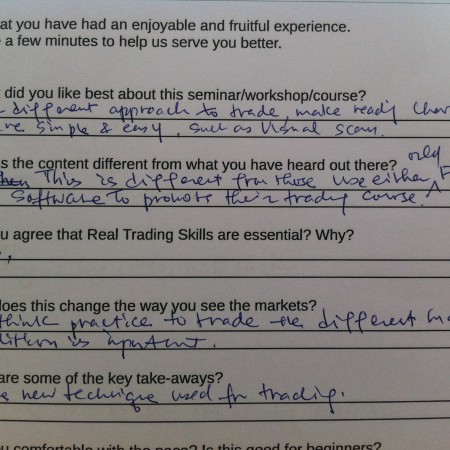 at you have had an enjoyable and fruitful experience.
a few minutes to help us serve you better.
did you like best about this seminar/workshop/course?
different approach to trade, make ready
simple & easy, such as Visual scan.
s the content different from what you have heard out there?
old
This is different from those use either
Software to promote their trading course.
u agree that Real Trading Skills are essential? Why?
does this change the way you see the markets?
think practice to trade the different
is important.
are some of the key take-aways?
new technique used for trading.
u comfortable with the pace? Is this good for beginners?